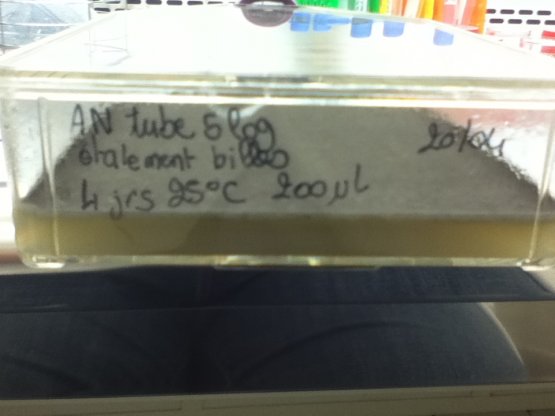 AN tube 5 log 20/04
étalement billes
4 jrs 25°C 200 µL